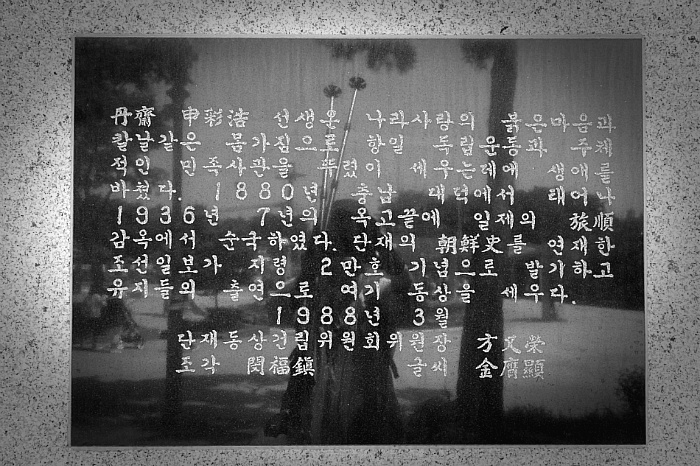 丹齋 申彩浩 선생은 나라사랑의 붉은마음과
칼날같은 몸가짐으로 항일 독립운동과 주체
적인 민족사관을 뚜렷이 세우는데 생애를
바쳤다. 1880년 충남 대덕에서 태어나
1936년 7년의 옥고끝에 일제의 旅順
감옥에서 순국하였다. 단재의 朝鮮史를 연재한
조선일보가 지령 2만호 기념으로 발기하고
유지들의 출연으로 여기 동상을 세우다.
1988년 3월
단재동상건립위원회위원장 方又榮
조각 閔福鎭 글씨 金膺顯